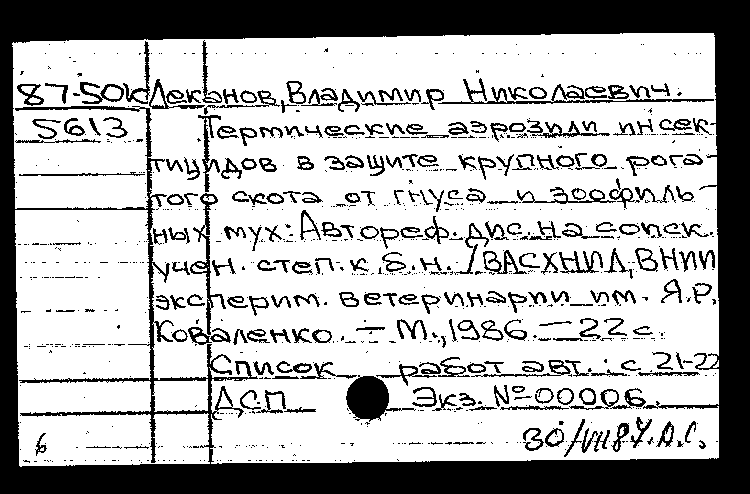 87-50К Леканов, Владимир Николаевич.
5613 Термические аэрозили инсек-
тицидов в защите крупного рога-
того скота от гнуса и зоофиль-
ных мух: Автореф. дис. на соиск.
учен. степ. к.б.н. /ВАСХНИЛ, ВНИИ
эксперим. ветеринарии им. Я.Р.
Коваленко. — М., 1986. — 22 с.
Список работ авт.: с. 21-22
ДСП Экз. № 00006.
б 30/VII 87. А.С.